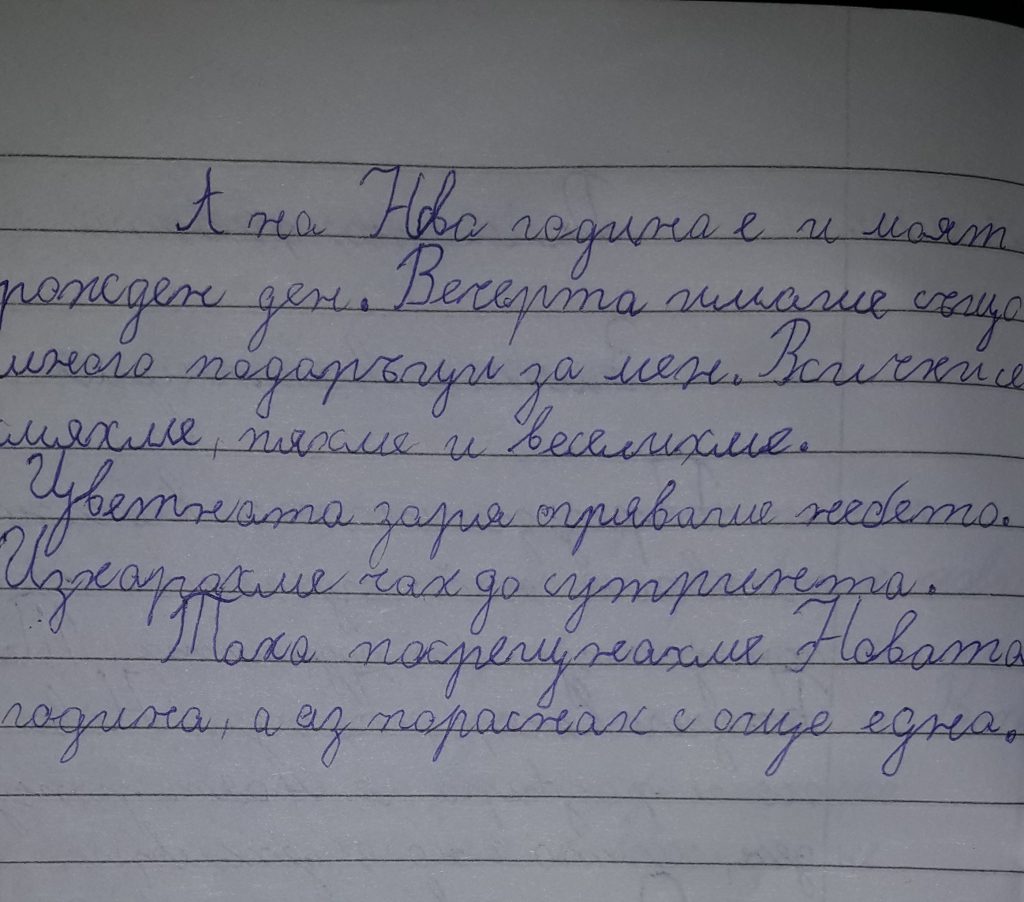 А на Нова година е и моят
рожден ден. Вечерта имаше също
много подаръци за мен. Всички се
смяхме, пяхме и веселихме.
Цветната заря огряваше небето.
Изкарахме чак до сутринта.
Така посрещнахме Новата
година, а аз пораснах с още една.